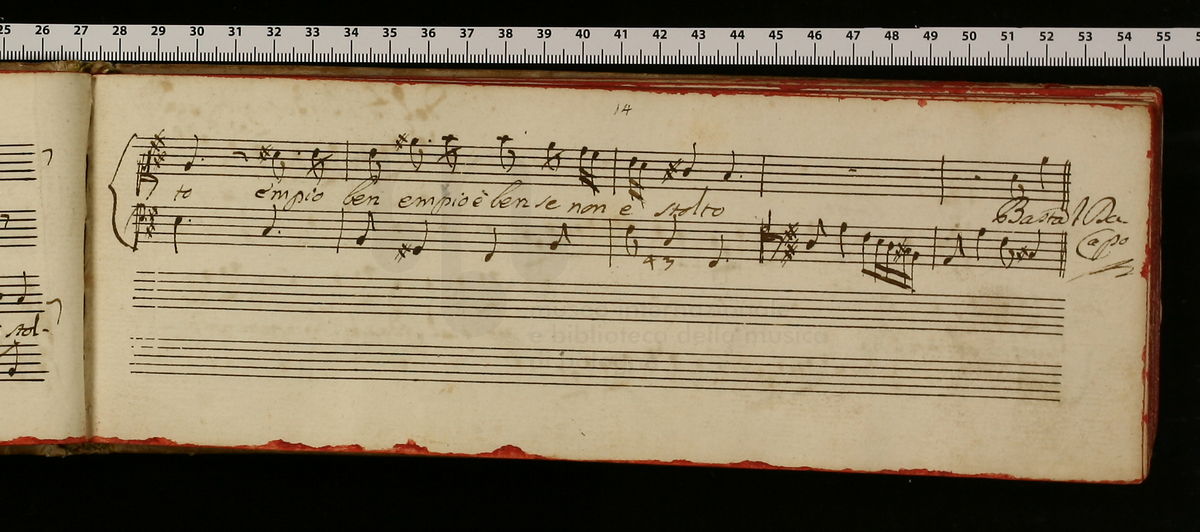 25 26 27 28 29 30 31 32 33 34 35 36 37 38 39 40 41 42 43 44 45 46 47 48 49 50 51 52 53 54 55
14
to empio ben empio è ben se non è stolto
Basta Da
Capo
4 3
stol-
e biblioteca della musica